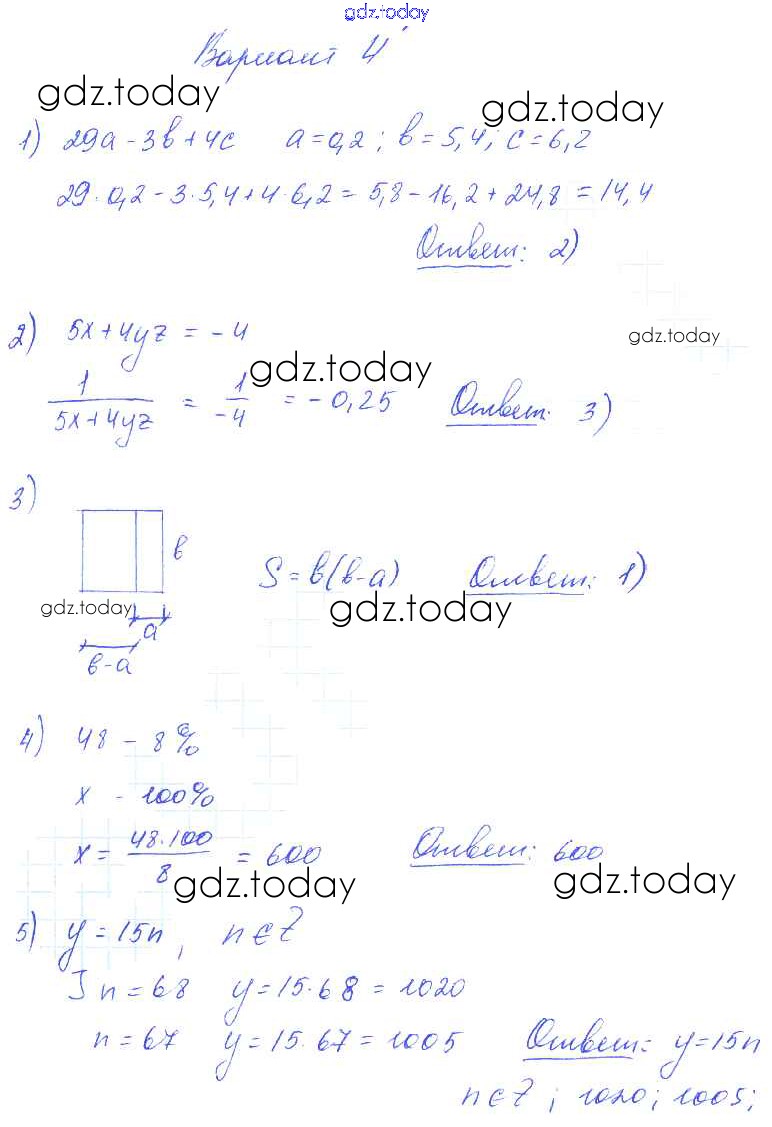 gdz.today
Вариант 4
gdz.today gdz.today
1) 29a - 3b + 4c a = 0,2 ; b = 5,4 ; c = 6,2
29·0,2 - 3·5,4 + 4·6,2 = 5,8 - 16,2 + 24,8 = 14,4
Ответ: 2)
2) 5x + 4yz = -4
gdz.today
gdz.today
1/(5x + 4yz) = 1/-4 = -0,25 Ответ: 3)
3)
b
S = b(b-a) Ответ: 1)
gdz.today gdz.today
a
b-a
4) 48 - 8%
x - 100%
x = 48·100/8 = 600 Ответ: 600
gdz.today gdz.today
5) y = 15n, n∈Z
] n = 68 y = 15·68 = 1020
n = 67 y = 15·67 = 1005 Ответ: y = 15n
n∈Z ; 1020; 1005;